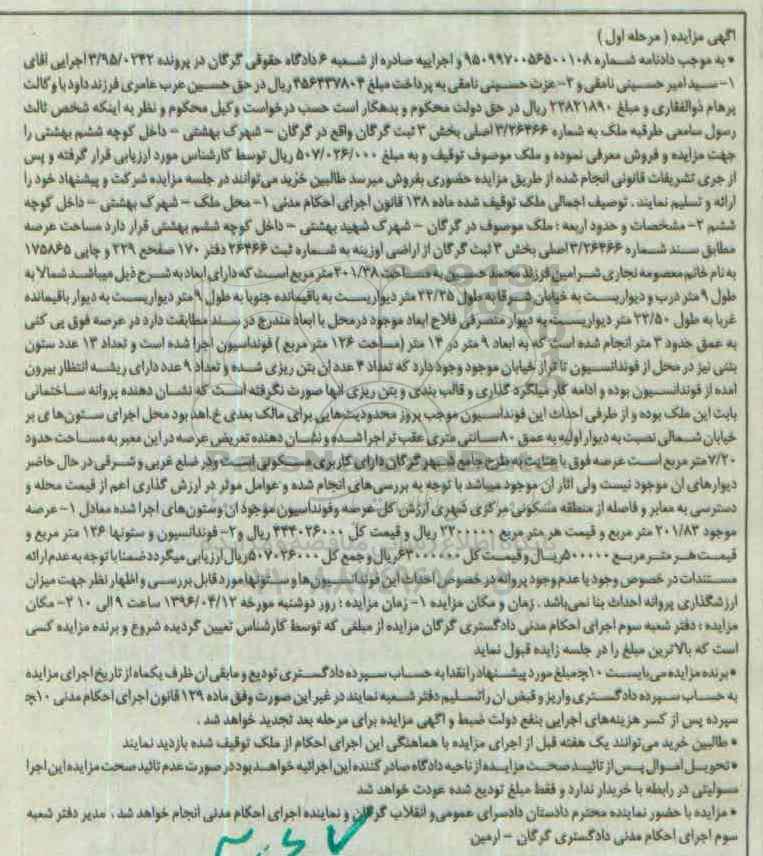 آگهی مزایده ( مرحله اول )
* به موجب دادنامه شماره ۹۵۰۹۹۷۰۰۵۶۵۰۰۱۰۸ و اجراییه صادره از شعبه ۶ دادگاه حقوقی گرگان در پرونده ۳/۹۵/۰۲۴۲ اجرایی آقای
۱- سید امیر حسینی نامقی و ۲- عزت حسینی نامقی به پرداخت مبلغ ۴۵۶۴۳۷۸۰۴ ریال در حق حسین عرب عامری فرزند داود با وکالت
پرهام ذوالفقاری و مبلغ ۲۲۸۲۱۸۹۰ ریال در حق دولت محکوم و بدهکار است حسب درخواست وکیل محکوم و نظر به اینکه شخص ثالث
رسول سامعی طرقبه ملک به شماره ۳/۲۶۴۶۶ اصلی بخش ۳ ثبت گرگان واقع در گرگان – شهرک بهشتی – داخل کوچه ششم بهشتی را
جهت مزایده و فروش معرفی نموده و ملک موصوف توقیف و به مبلغ ۵۰۷/۰۲۶/۰۰۰ ریال توسط کارشناس مورد ارزیابی قرار گرفته و پس
از جری تشریفات قانونی انجام شده از طریق مزایده حضوری بفروش میرسد طالبین خرید می‌توانند در جلسه مزایده شرکت و پیشنهاد خود را
ارائه و تسلیم نمایند . توصیف اجمالی ملک توقیف شده ماده ۱۳۸ قانون اجرای احکام مدنی ۱- محل ملک – شهرک بهشتی – داخل کوچه
ششم ۲- مشخصات و حدود اربعه : ملک موصوف در گرگان – شهرک شهید بهشتی – داخل کوچه ششم بهشتی قرار دارد مساحت عرصه
مطابق سند شماره ۳/۲۶۴۶۶ اصلی بخش ۳ ثبت گرگان از اراضی اوزینه به شماره ثبت ۲۶۴۶۶ دفتر ۱۷۰ صفحه ۲۲۹ و چاپی ۱۷۵۸۶۵
به نام خانم معصومه نجاری شرامین فرزند محمد حسن به مساحت ۲۰۱/۳۸ متر مربع است که دارای ابعاد به شرح ذیل میباشد شمالا به
طول ۹ متر درب و دیواریست به خیابان شرقا به طول ۲۲/۲۵ متر دیواریست به باقیمانده جنوبا به طول ۹ متر دیواریست به دیوار باقیمانده
غربا به طول ۲۲/۵۰ متر دیواریست به دیوار متصرفی فلاح ابعاد موجود درمحل با ابعاد مندرج در سند مطابقت دارد در عرصه فوق پی کنی
به عمق حدود ۳ متر انجام شده است که به ابعاد ۹ متر در ۱۴ متر (مساحت ۱۲۶ متر مربع ) فونداسیون اجرا شده است و تعداد ۱۳ عدد ستون
بتنی نیز در محل از فونداسیون تا تراز خیابان موجود وجود دارد که تعداد ۴ عدد آن بتن ریزی شده و تعداد ۹ عدد دارای ریشه انتظار بیرون
آمده از فونداسیون بوده و ادامه کار میلگرد گذاری و قالب بندی و بتن ریزی آنها صورت نگرفته است که نشان دهنده پروانه ساختمانی
بابت این ملک بوده و از طرفی احداث این فونداسیون موجب بروز محدودیت‌هایی برای مالک بعدی خ.اهد بود محل اجرای ستون‌ها ی بر
خیابان شمالی نصبت به دیوار اولیه به عمق ۸۰ سانتی متری عقب تر اجرا شده و نشان دهنده تعریض عرصه در این معبر به مساحت حدود
۷/۲۰ متر مربع است عرصه فوق با عنایت به طرح جامع شهر گرگان دارای کاربری مسکونی است و در ضلع غربی و شرقی در حال حاضر
دیوارهای آن موجود نیست ولی آثار آن موجود میباشد با توجه به بررسی‌های انجام شده و عوامل موثر در ارزش گذاری اعم از قیمت محله و
دسترسی به معابر و فاصله از منطقه مسکونی مرکزی شهری ارزش کل عرصه وفونداسیون موجود آن وستون‌های اجرا شده معادل ۱- عرصه
موجود ۲۰۱/۸۳ متر مربع و قیمت هر متر مربع ۲۲۰۰۰۰۰ ریال و قیمت کل ۴۴۴۰۲۶۰۰۰ ریال و۲- فوندانسیون و ستونها ۱۲۶ متر مربع و
قیمت هر متر مربع ۵۰۰۰۰۰ ریال و قیمت کل ۶۳۰۰۰۰۰۰ ریال و جمع کل ۵۰۷۰۲۶۰۰۰ ریال ارزیابی میگردد ضمنا با توجه به عدم ارائه
مستندات در خصوص وجود یا عدم وجود پروانه در خصوص احداث این فوندانسیون‌ها و ستونها مورد قابل بررسی و اظهار نظر جهت میزان
ارزشگذاری پروانه احداث بنا نمی‌باشد . زمان و مکان مزایده ۱- زمان مزایده : روز دوشنبه مورخه ۱۳۹۶/۰۴/۱۲ ساعت ۹ الی ۱۰ ۲- مکان
مزایده : دفتر شعبه سوم اجرای احکام مدنی دادگستری گرگان مزایده از مبلغی که توسط کارشناس تعیین گردیده شروع و برنده مزایده کسی
است که بالاترین مبلغ را در جلسه زایده قبول نماید
* برنده مزایده می‌بایست ۱۰٪ مبلغ مورد پیشنهاد را نقدا به حساب سپرده دادگستری تودیع و مابقی آن ظرف یکماه از تاریخ اجرای مزایده
به حساب سپرده دادگستری واریز و قبض آن را تسلیم دفتر شعبه نمایند در غیر این صورت وفق ماده ۱۲۹ قانون اجرای احکام مدنی ۱۰٪
سپرده پس از کسر هزینه‌های اجرایی بنفع دولت ضبط و آگهی مزایده برای مرحله بعد تجدید خواهد شد .
* طالبین خرید می‌توانند یک هفته قبل از اجرای مزایده با هماهنگی این اجرای احکام از ملک توقیف شده بازدید نمایند
* تحویل اموال پس از تائید صحت مزایده از ناحیه دادگاه صادر کننده این اجرائیه خواهد بود در صورت عدم تائید صحت مزایده این اجرا
مسولیتی در رابطه با خریدار ندارد و فقط مبلغ تودیع شده عودت خواهد شد
* مزایده با حضور نماینده محترم دادستان دادسرای عمومی و انقلاب گرگان و نماینده اجرای احکام مدنی انجام خواهد شد . مدیر دفتر شعبه
سوم اجرای احکام مدنی دادگستری گرگان – آرمین